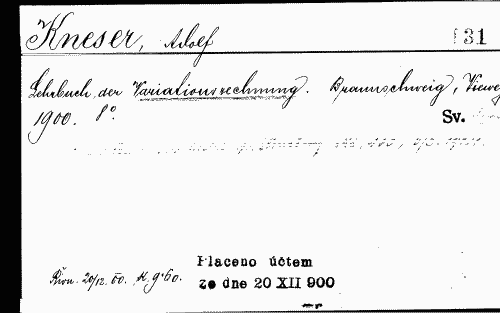 Kneser, Adolf 31
Lehrbuch der Variationsrechnung. Braunschweig, Vieweg
1900. 8°.
Sv.
Placeno účtem
20/12. 00. K 9·60.
ze dne 20 XII 900